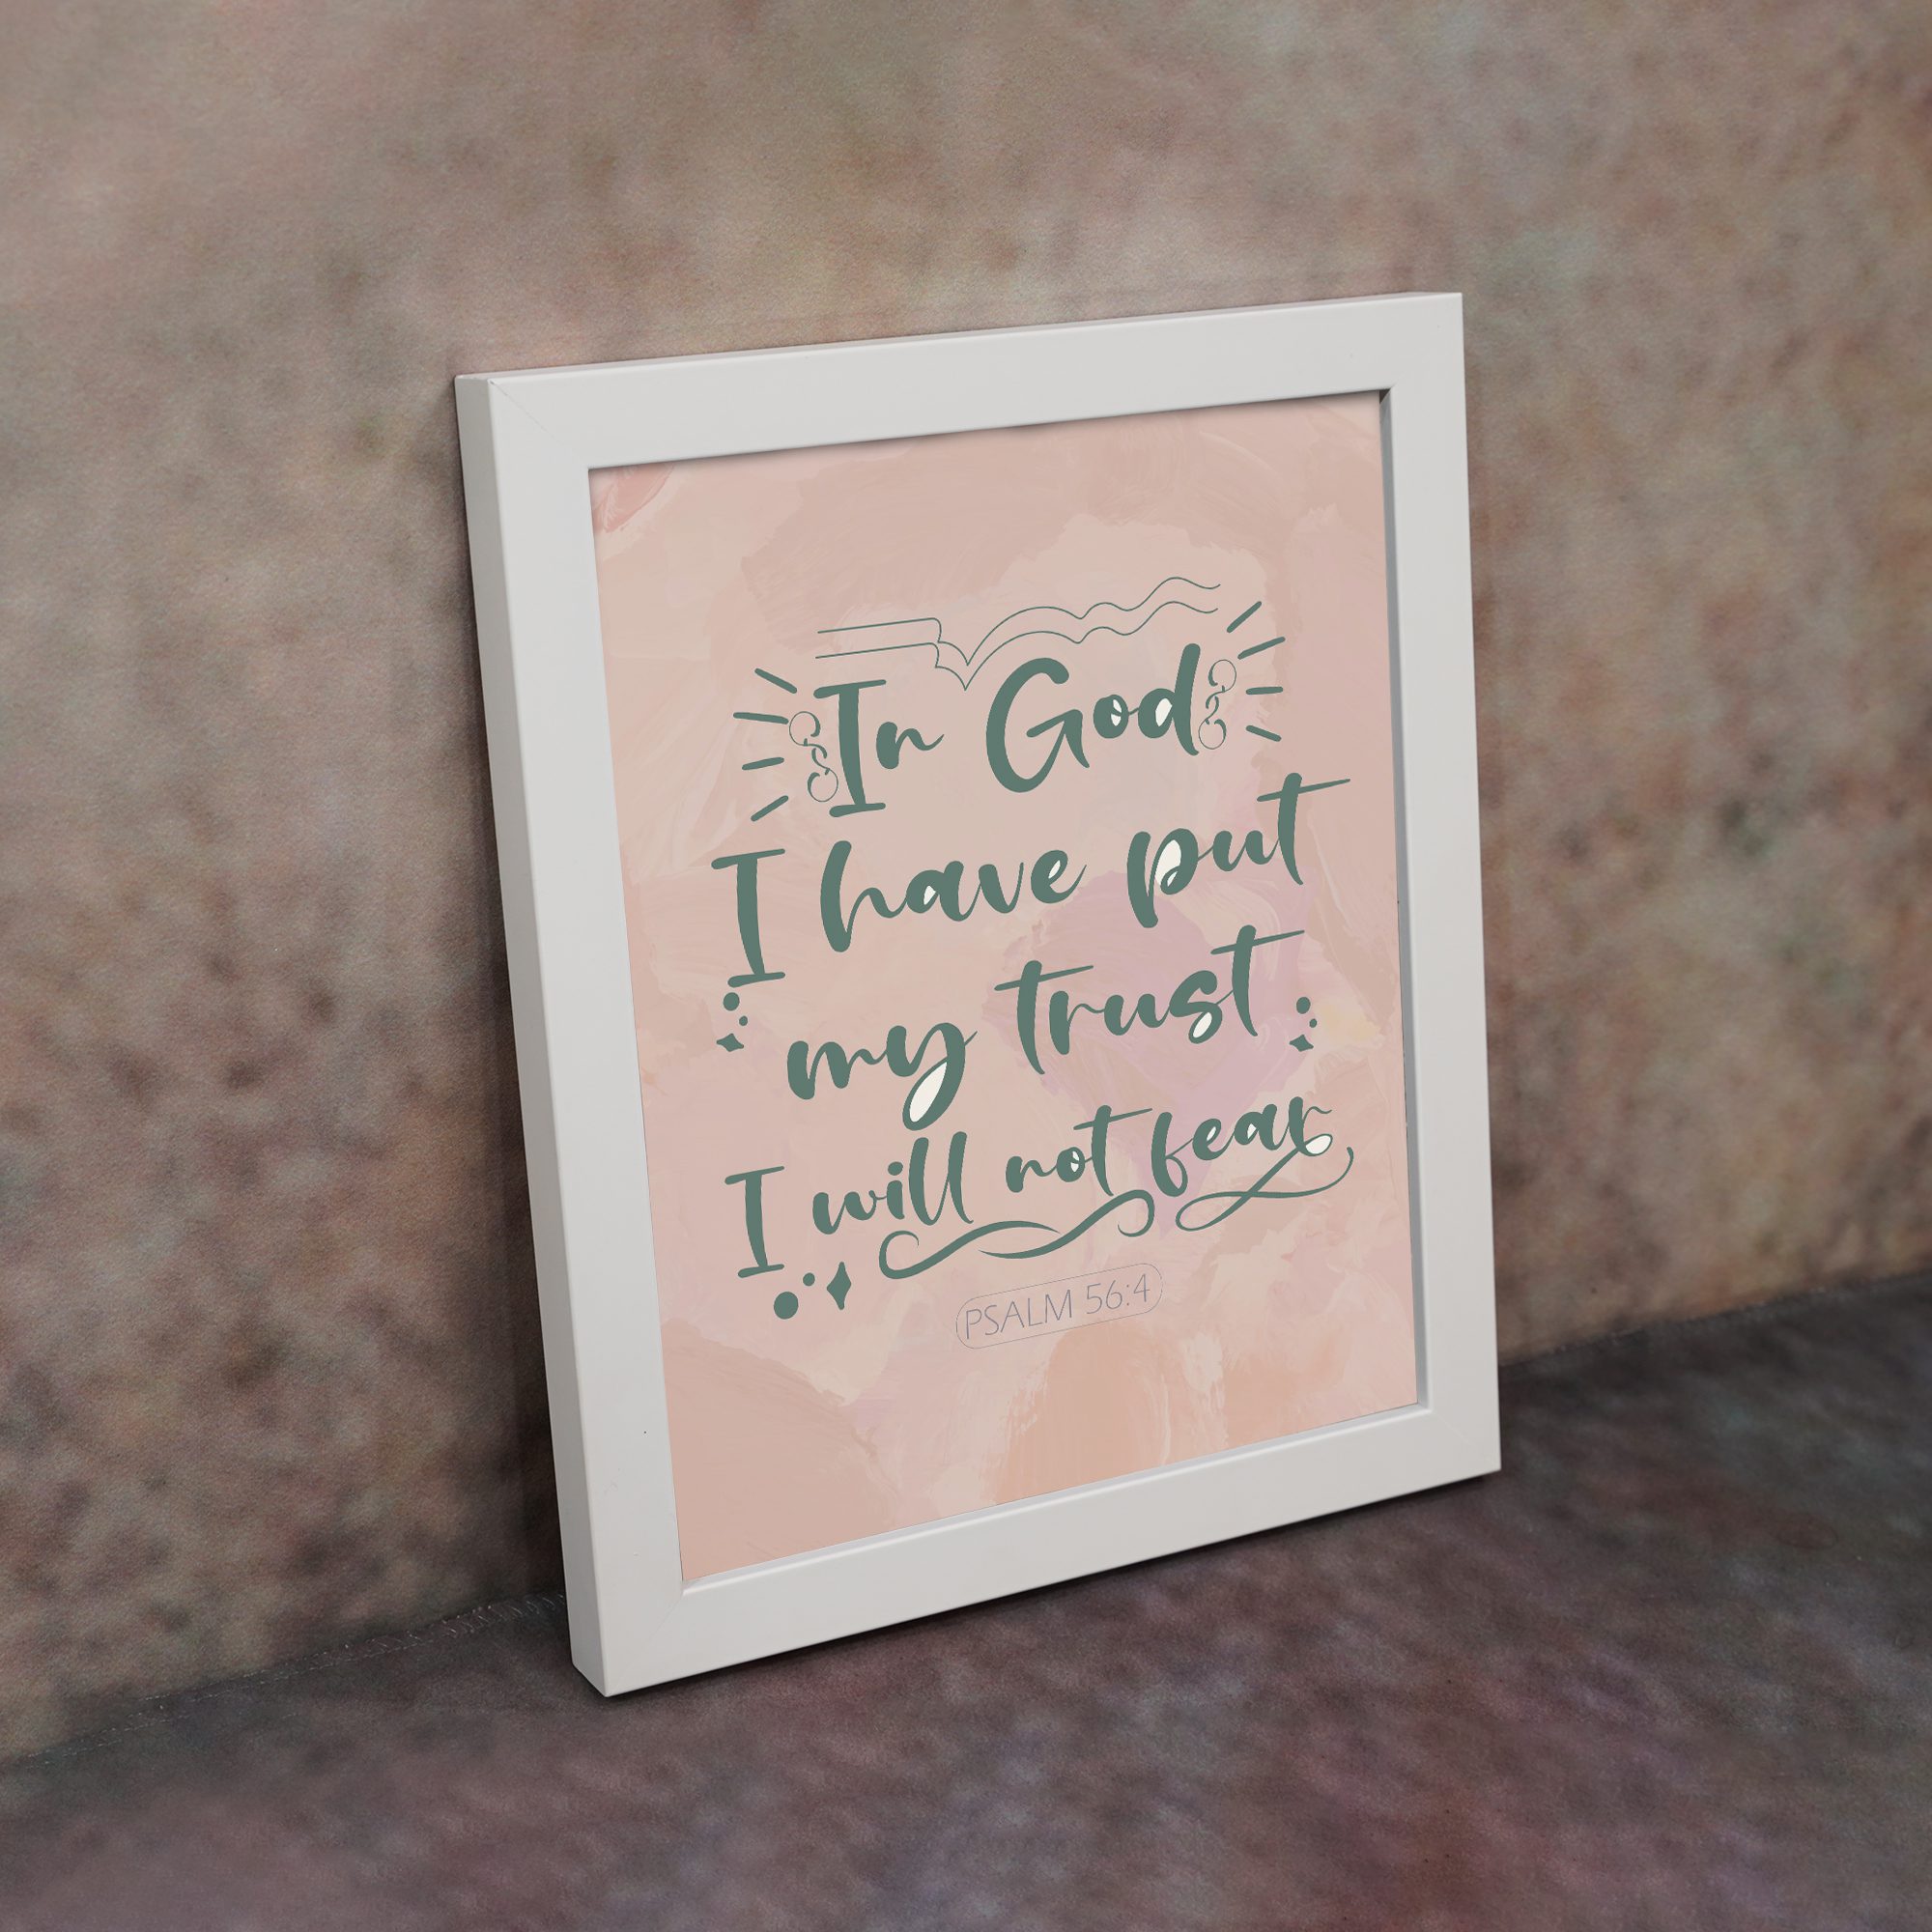 In God
I have put
my trust
I will not fear
PSALM 56:4